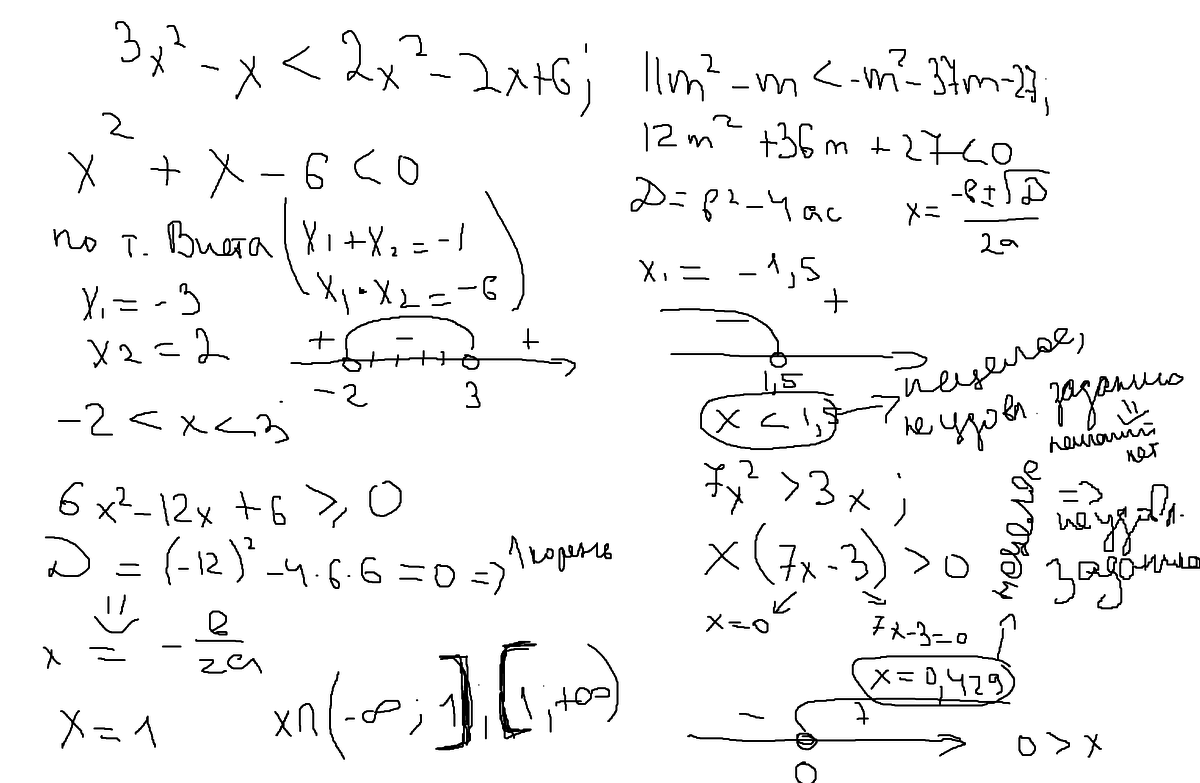 3x² - x < 2x² - 2x + 6;
x² + x - 6 < 0
по т. Виета (x₁ + x₂ = -1
x₁ · x₂ = -6)
x₁ = -3
x₂ = 2
+ - +
-2 3
-2 < x < 3;
6x² - 12x + 6 ⩾ 0
D = (-12)² - 4·6·6 = 0 => 1 корень
x = - в/2a
x = 1
x∩(-∞; 1];[1, +∞)
11m² - m < -m² - 37m - 27;
12m² + 36m + 27 < 0
D = в² - 4ac x = (-в ± √D)/2a
x₁ = -1,5
- +
1,5
x < 1,5
нецелое,
не удовл. заданию
нет
7x² > 3x;
x(7x - 3) > 0
x = 0 7x - 3 = 0
x = 0,429
нецелое
=> неудовл.
заданию
- +
0
0 > x